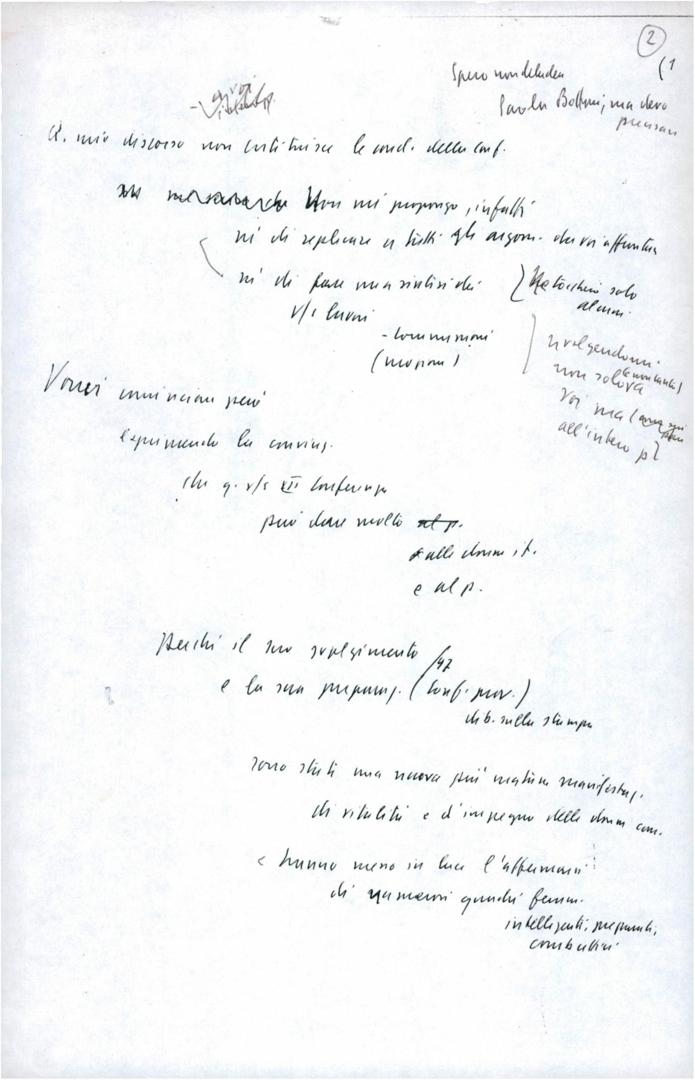 2
(1
Spero non deluder
Paola Bottoni, ma devo
precisar
Il mio discorso non costituisce le concl. della conf.
Non mi propongo, infatti
né di replicare a tutti gli argom. da voi affrontati
né di fare una sintesi dei
v/i lavori
- commissioni
(mozioni)
Ne toccherò solo
alcuni
rivolgendomi
non solo a
voi ma
all'intero p.
Vorrei cominciare però
esprimendo la convinz.
che q. v/s XII Conferenza
può dare molto al p.
alle donne it.
e al p.
Perché il suo svolgimento
e la sua preparaz. (97 conf. prov.)
dib. sulla stampa
sono stati una nuova più matura manifestaz.
di vitalità e d'impegno delle donne com.
e hanno messo in luce l'affermarsi
di numerosi quadri femm.
intelligenti, preparati,
combattivi